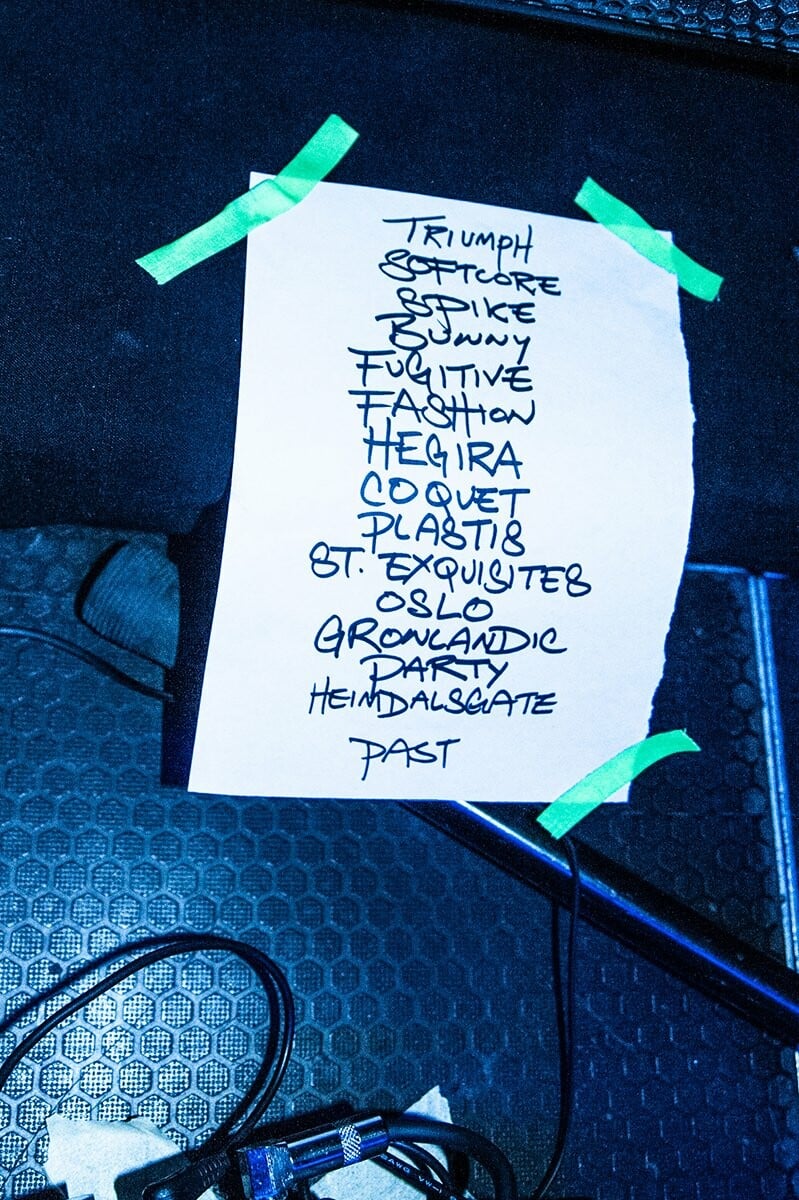 TRIUMPH
SOFTCORE
SPIKE
BUNNY
FUGITIVE
FASHION
HEGIRA
COQUET
PLASTIS
ST. EXQUISITES
OSLO
GRONLANDIC
PARTY
HEIMDALSGATE
PAST
AWG VW-1